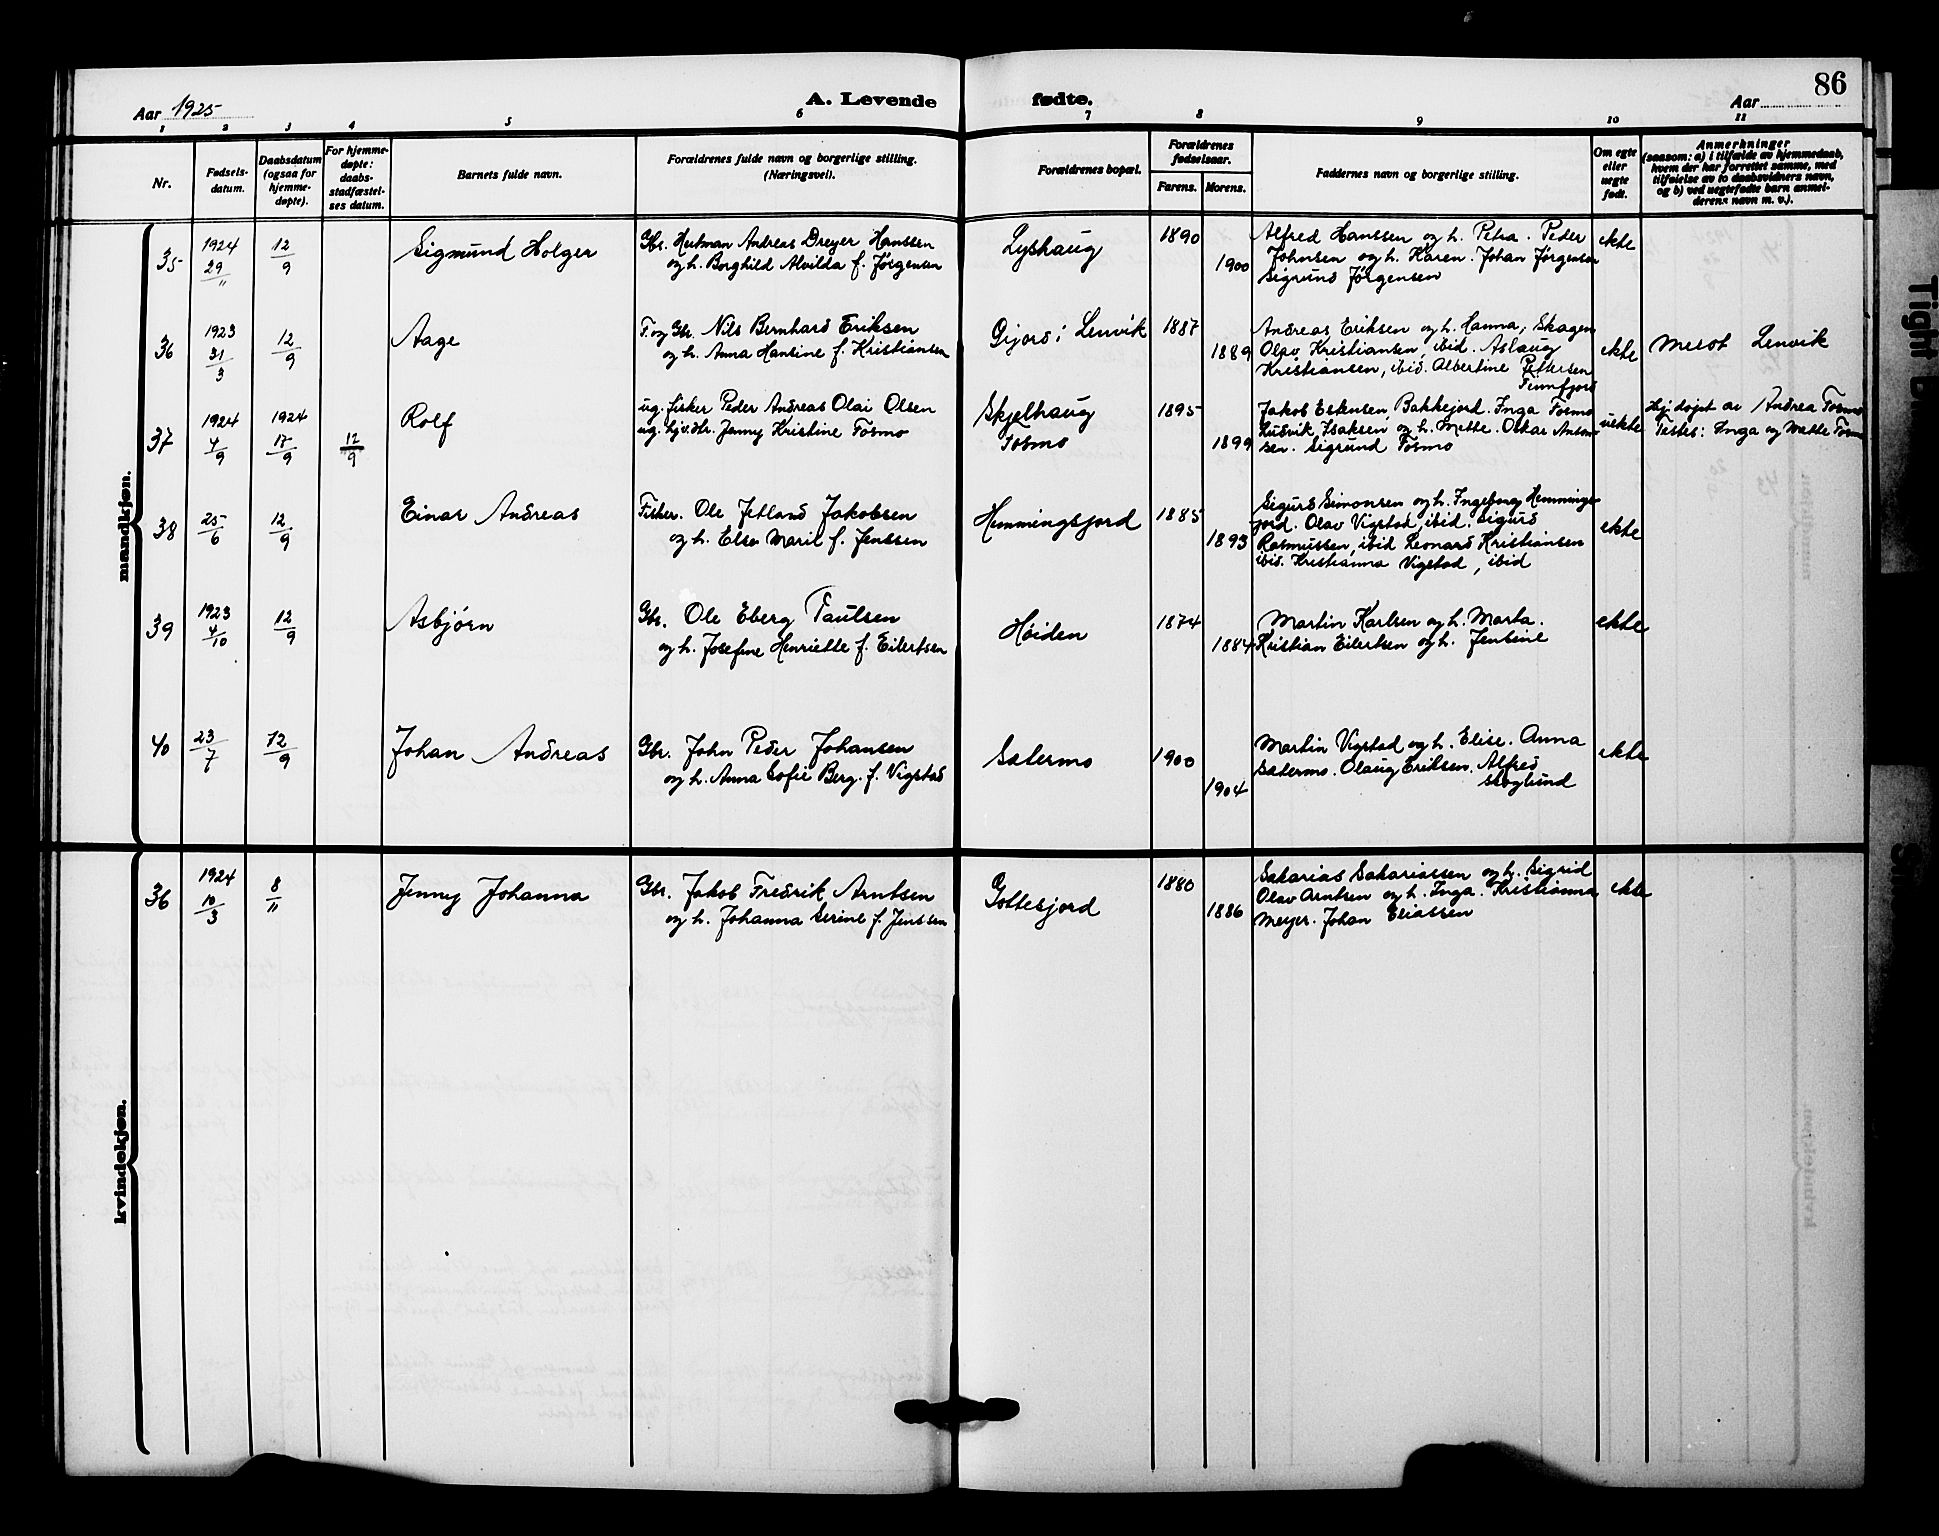 Aar 1925
A. Levende
fødte.
Aar
86
1 2 3 4 5 6 7 8 9 10 11
Nr.
Fødsels-
datum.
Daabsdatum
(ogsaa for
hjemme-
døpte).
For hjemme-
døpte:
daabs-
stadfæstel-
ses datum.
Barnets fulde navn.
Forældrenes fulde navn og borgerlige stilling.
(Næringsvei).
Forældrenes bopæl.
Forældrenes
fødselsaar.
Farens. Morens.
Faddernes navn og borgerlige stilling.
Om egte
eller
uegte
født.
Anmerkninger
(saasom: a) i tilfælde av hjemmedaab,
hvem der har forrettet samme, med
tilføielse av to daabsvidners navn,
og b) ved uegtefødte barn anmel-
derens navn m. v.).
mandkjøn.
35
1924
29/11
12/9
Sigmund Holger
Gbr. Hertman Andreas Dreyer Hanssen
og h. Borghild Alvilda f. Jørgensen
Lyshaug
1890
1900
Alfred Hanssen og h. Petra. Peder
Johnsen og h. Karen. Johan Jørgensen
Sigrund Jørgensen
ekte
36
1923
31/3
12/9
Aage
F. og Gbr. Nils Bernhard Eriksen
og h. Anna Hansine f. Kristiansen
Gjord i Lenvik
1887
1889
Andreas Eriksen og h. Hanna, Skagen
Olav Kristiansen, ibid. Aslaug
Kristiansen, ibid. Albertine Pettersen
Finnfjord
ekte
Lenvik
37
1924
4/9
1924
17/9
12/9
Rolf
ug. fisker Peder Andreas Olai Olsen
ug. Jenny Kristine Tosmo
Skjelhaug
Tosmo
1895
1899
Jakob Eskensen, Bakkejord. Inga Tosmo
Ludvik Isaksen og h. Mette. Oskar Anton-
sen. Sigrund Tosmo
uekte
Hj. døpt av Andrea Tosmo
Testes: Inga og Mette Tosmo
38
25/6
12/9
Einar Andreas
Fisker. Ole Jetland Jakobsen
og h. Else Marie f. Jenssen
Hemmingsjord
1885
1893
Sigurd Simonsen og h. Ingeborg Hemmings-
jord. Olav Vigstad, ibid. Sigurd
Rasmussen, ibid Leonard Kristiansen
ibid. Kristianna Vigstad, ibid
ekte
39
1923
4/10
12/9
Asbjørn
Gbr. Ole Eberg Paulsen
og h. Josefine Henriette f. Eilertsen
Høiden
1874
1884
Martin Karlsen og h. Marta.
Kristian Eilertsen og h. Jensine
ekte
40
23/7
12/9
Johan Andreas
Gbr. John Peder Johansen
og h. Anna Sofie Berg. f. Vigstad
Satermo
1900
1904
Martin Vigstad og h. Elise. Anna
Satermo. Olaug Eriksen. Alfred
Skoglund
ekte
kvindekjøn.
36
1924
10/3
8/11
Jenny Johanna
Gbr. Jakob Fredrik Arntsen
og h. Johanna Serine f. Jenssen
Gottesjord
1880
1886
Sakarias Sakariassen og h. Sigrid
Olav Arntsen og h. Inga. Kristianna
Meyer. Johan Eliassen
ekte
Tight